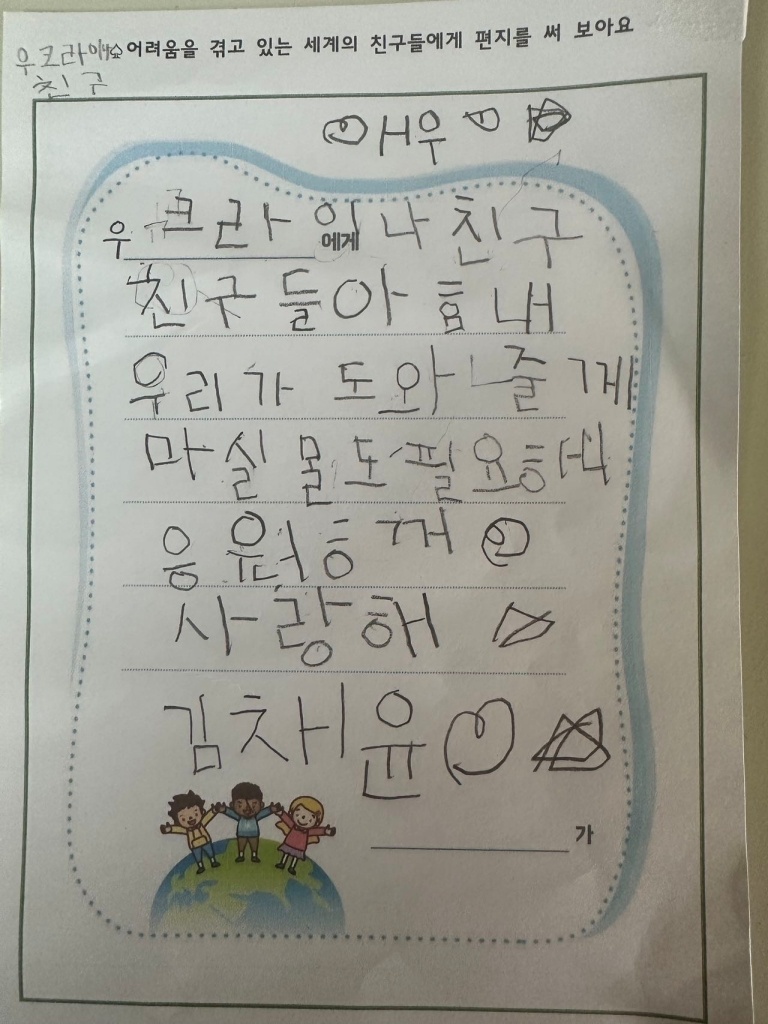 어려움을 겪고 있는 세계의 친구들에게 편지를 써 보아요
우크라이나
친구
우크라이나 친구
에게
친구들아 힘내
우리가 도와줄게
마실물도 필요해
응원할게
사랑해
김채윤
가